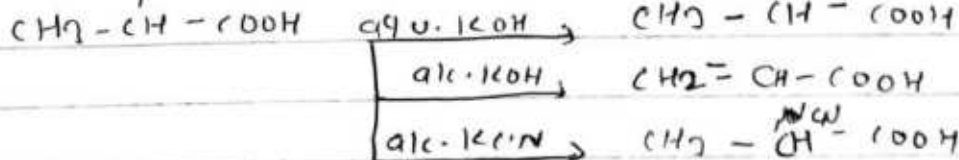 CH3 - CH - COOH aqu. KOH → CH3 - CH - COOH
alc. KOH → CH2 = CH - COOH
alc. KCN → CH3 - CH - COOH
CN